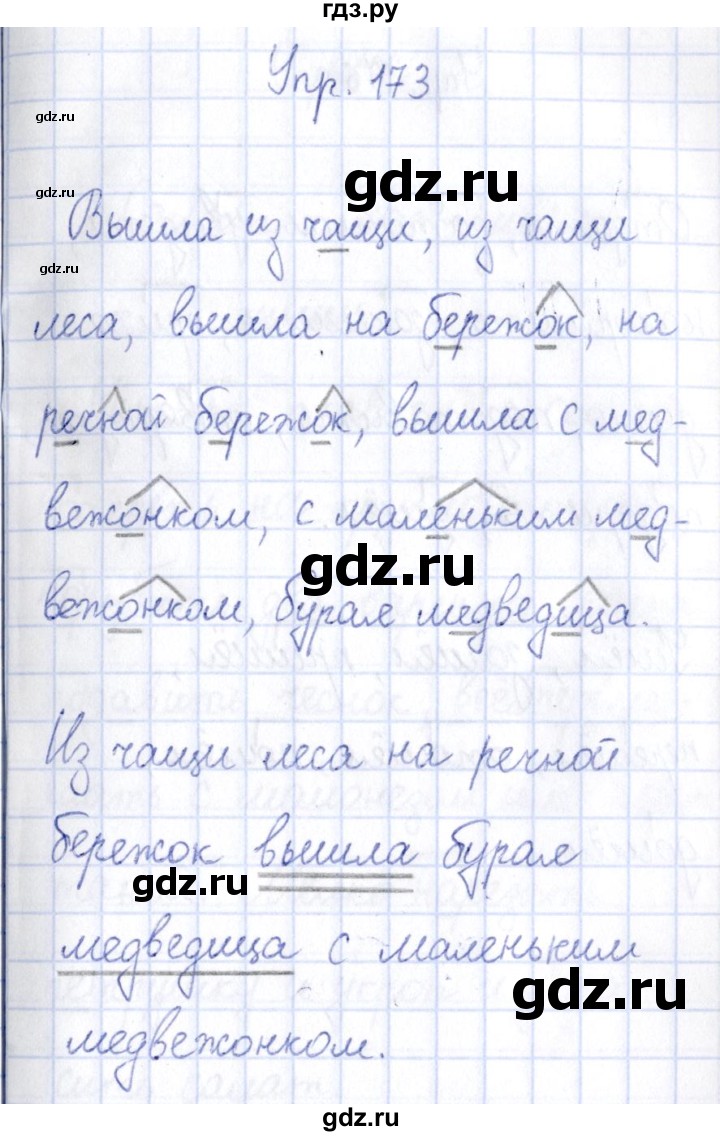 гдз.ру
Упр. 173
gdz.ru
gdz.ru
gdz.ru
Вышла из чащи, из чащи
gdz.ru
леса, вышла на бережок, на
речной бережок, вышла с мед-
вежонком, с маленьким мед-
gdz.ru
вежонком, бурая медведица.
Из чащи леса на речной
бережок вышла бурая
gdz.ru
медведица с маленьким
gdz.ru
медвежонком.
gdz.ru